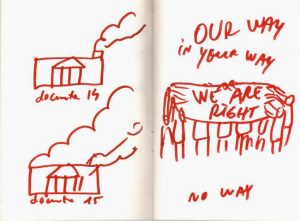 documenta 14
documenta 15
OUR WAY
in YOUR WAY
WE ARE
RIGHT
NO WAY